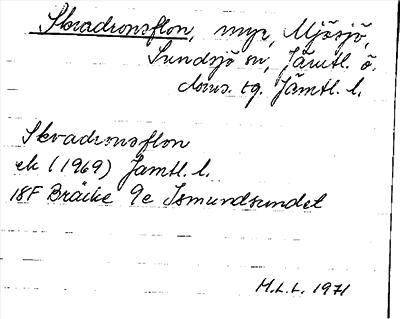 Skvadronsflon, myr, Mjösjö,
Sundsjö sn, Jämtl. ö.
doms. tg. Jämtl. l.
Skvadronsflon
ek (1969) Jämtl. l.
18F Bräcke 9e Ismundsundet
M.L.L. 1971